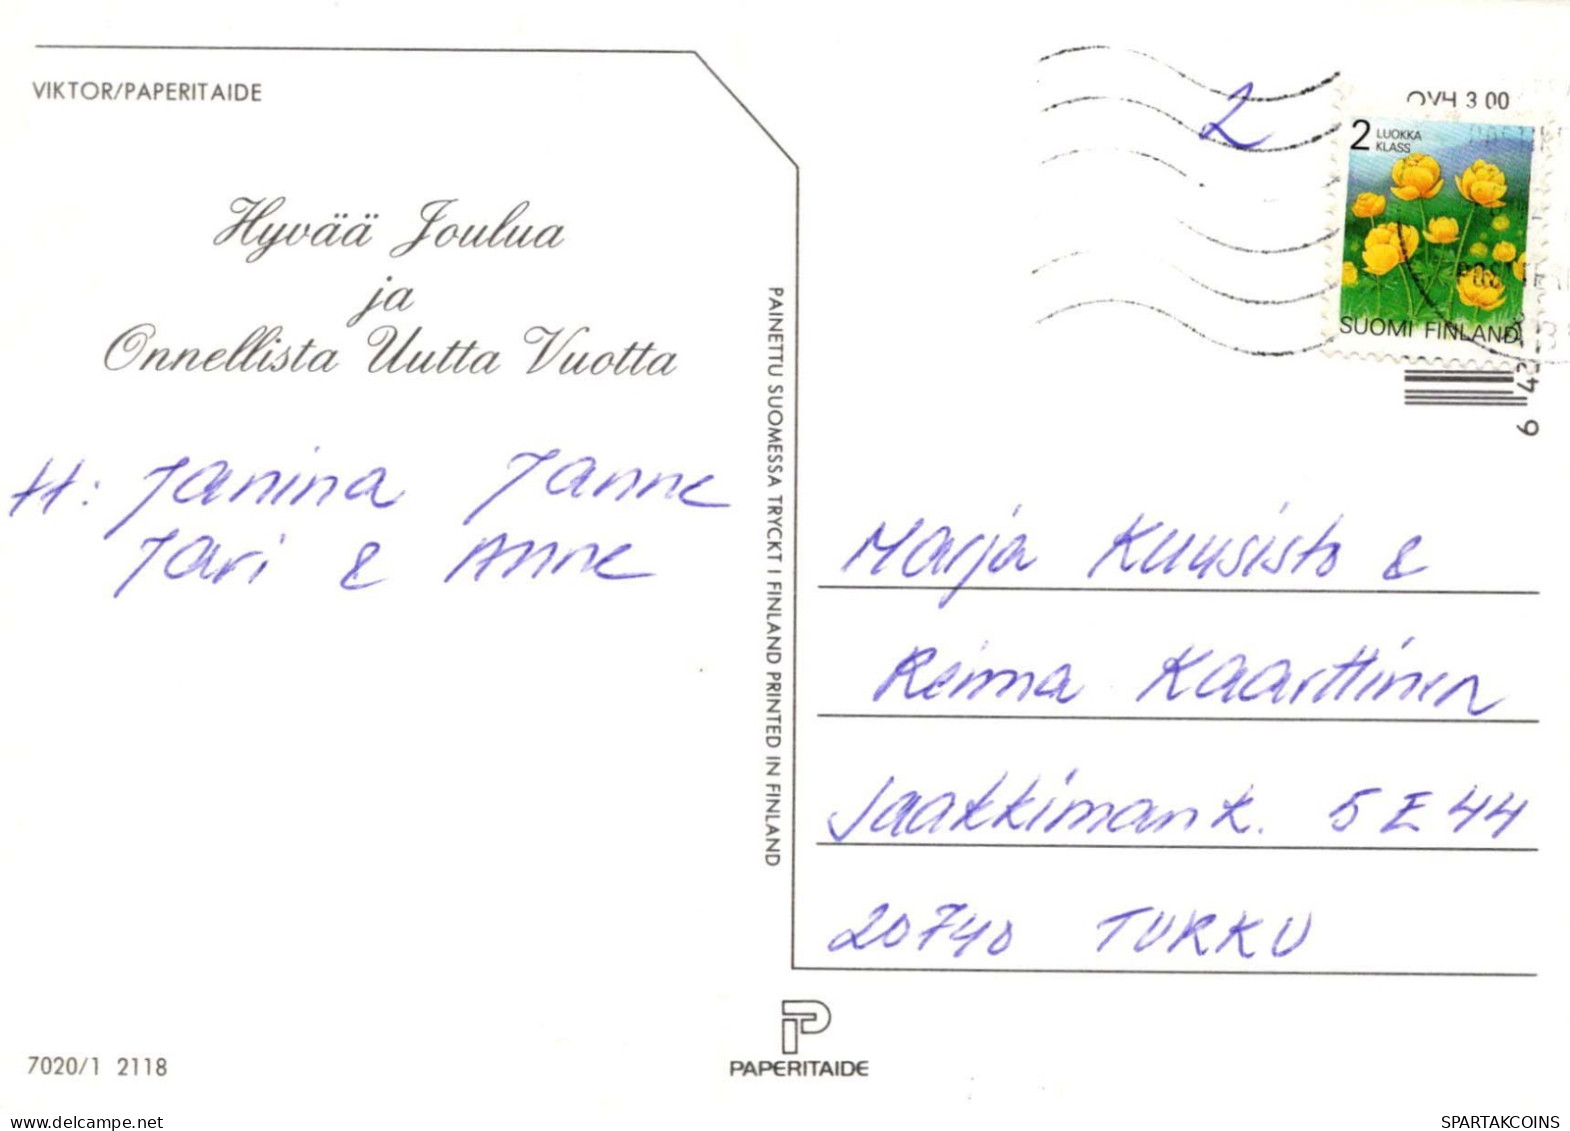 VIKTOR/PAPERITAIDE
Hyvää Joulua
ja
Onnellista Uutta Vuotta
H: Janina Janne
Jari & Anne
7020/1 2118
PAINETTU SUOMESSA TRYCKT I FINLAND PRINTED IN FINLAND
PAPERITAIDE
2
OVH 3.00
2 LUOKKA
KLASS
SUOMI FINLAND
Marja Kuusisto &
Reima Kaarttinen
Jaakkimank. 5 E 44
20740 TURKU
delcampe.net
SPARTAKCOINS